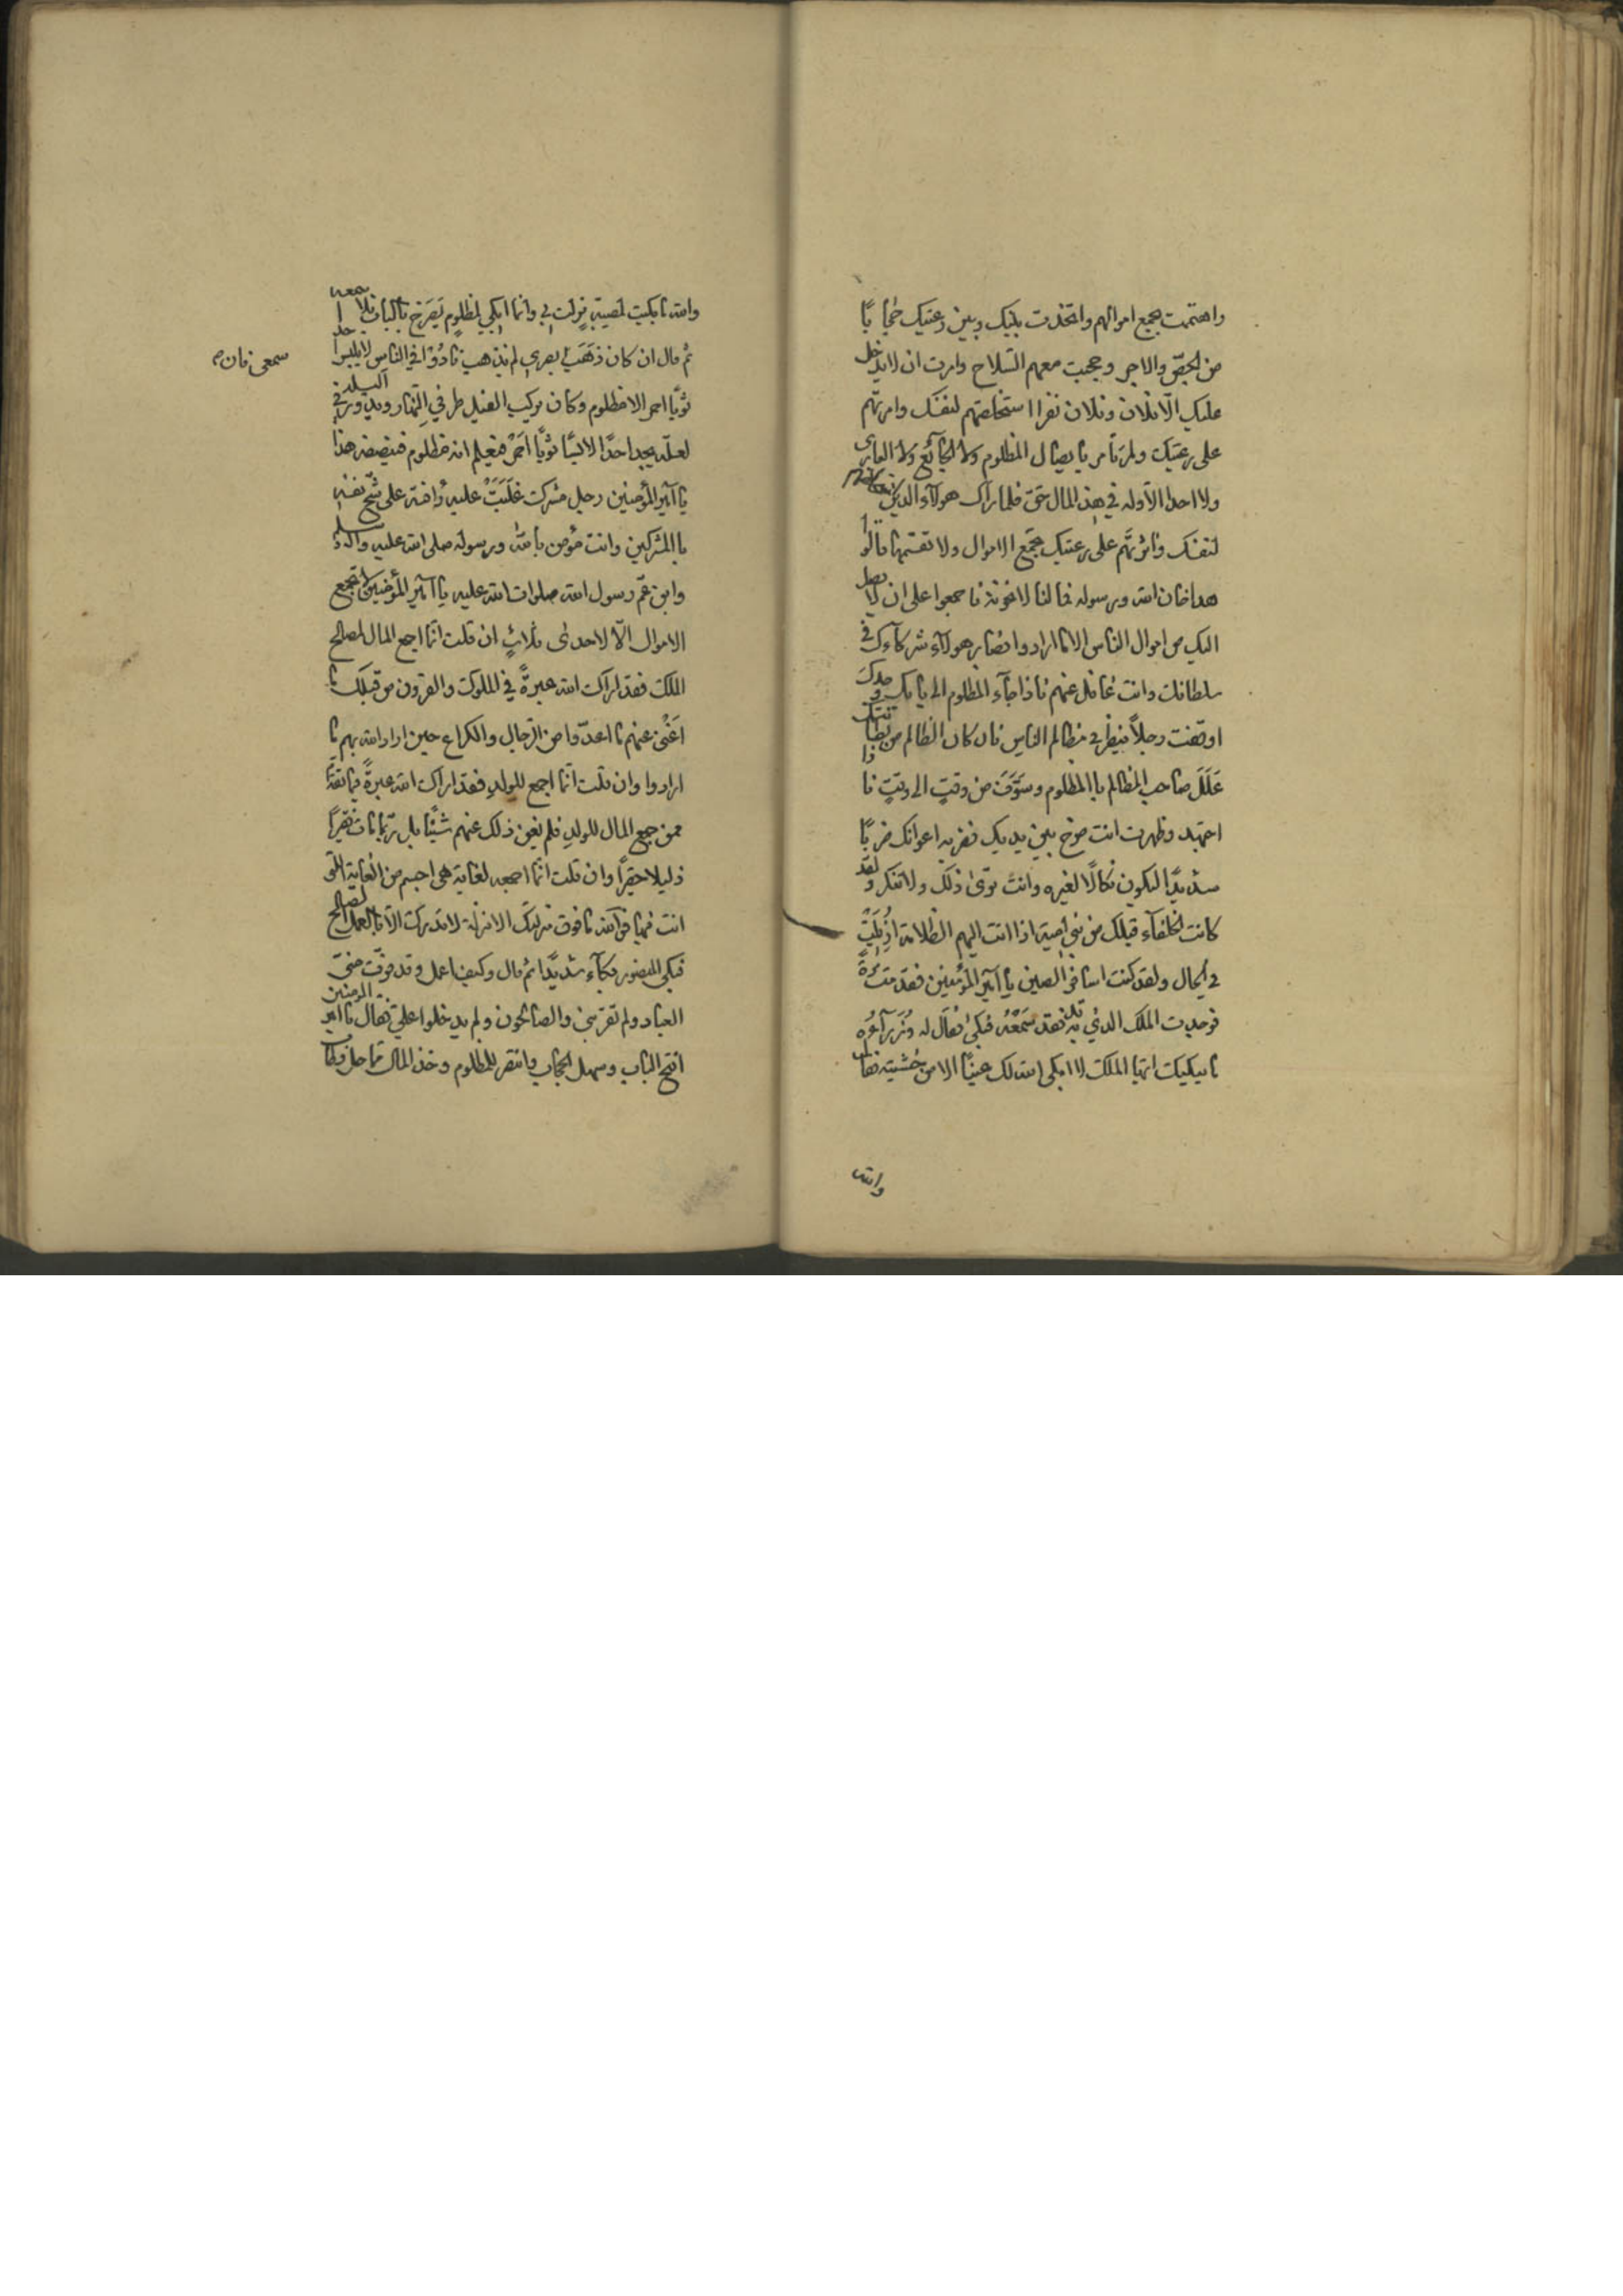 واهتممت بجمع اموالهم واتخذت بينك وبين رعيتك حجابًا
من الجصّ والاجر وحجبت معهم السّلاح وامرت ان لا يدخل
عليك الّا فلان وفلان نفرا استخلصتهم لنفسك وامرتهم
على رعيتك ولم تأمر بايصال المظلوم ولا الجائع ولا العارى
ولا احد الّا وله في هذا المال حق فلما راك هولاء الذين استخلصتهم
لنفسك واثرتهم على رعيتك تجمع الاموال ولا تقسمها قالوا
هذا خان الله ورسوله فما لنا لا نخونه فاجمعوا على ان لا يصل
اليك من اموال الناس الا ما ارادوا فصار هولاء شركاءك في
سلطانك وانت غافل عنهم فاذا جاء المظلوم الى بابك وجدك
اوقفت رجلاً ينظر في مظالم الناس فان كان الظالم من بطانتك
علّل صاحب المظالم بالمظلوم وسوّف من وقتٍ الى وقتٍ فاذا
اجتهد وظهرت انت صرخ بين يديك فضربه اعوانك ضربًا
شديدًا ليكون نكالًا لغيره وانت ترى ذلك ولا تنكر ولقد
كانت الخلفاء قبلك من بني امية اذا انت اليهم الظلامة ازيلت
في الحال ولقد كنت اسافر الصين يا امير المؤمنين فقدمت مرةً
فوجدت الملك الذي به قد فقد سمعه فبكى فقال له وزراءه
ما يبكيك ايها الملك لا ابكى الله لك عينًا الا من خشيته فقال
والله
والله ما بكيت لمصيبة نزلت بي وانما ابكي لمظلوم يصرخ بالباب فلا اسمعه
ثم قال ان كان ذهب سمعى فان بصري لم يذهب نادوا في الناس لا يلبس احد
ثوبًا احمر الا مظلوم وكان يركب الفيل طرفي النهار ويدور في البلد
لعلّه يجد احدًا لابسًا ثوبًا احمر فيعلم انه مظلوم فينصفه هذا
يا امير المؤمنين رجل مشرك غلبت عليه رافته على شحّ نفسه
بالمشركين وانت مؤمن بالله ورسوله صلى الله عليه واله وسلم
وابن عمّ رسول الله صلوات الله عليه يا امير المؤمنين لا تجمع
الاموال الّا لاحدى ثلاثٍ ان قلت انما اجمع المال لمصالح
الملك فقد اراك الله عبرةً في الملوك والقرون من قبلك ما
اغنى عنهم ما اعدّوا من الرّجال والكراع حين اراد الله بهم ما
ارادوا وان قلت انما اجمع للولد فقد اراك الله عبرةً فيما تقدّم
ممن جمع المال للولد فلم يغن ذلك عنهم شيئًا بل ربما مات فقيرًا
ذليلا حقيرًا وان قلت انما اجمعه لغاية هي اجسم من الغاية التي
انت فيها فو الله ما فوق منزلتك الا منزلة لا تدرك الّا بالعمل الصالح
فبكى المنصور بكاء شديدًا ثم قال وكيف اعمل وقد فرّت منى
العباد ولم تقربني والصالحون ولم يدخلوا علي فقال يا امير المومنين
افتح الباب وسهل الحجاب وانتصر للمظلوم وخذ المال مما حل وطاب
سمعى فان ص